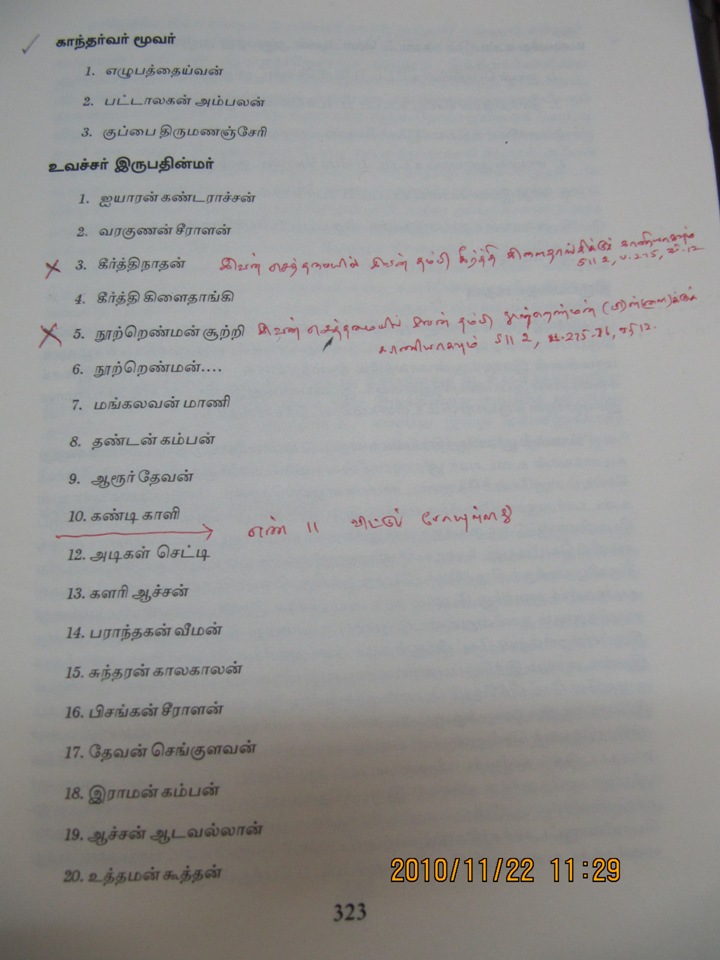 காந்தர்வர் மூவர்
1. எழுபத்தைய்வன்
2. பட்டாலகன் அம்பலன்
3. குப்பை திருமணஞ்சேரி
உவச்சர் இருபதின்மர்
1. ஐயாரன் கண்டராச்சன்
2. வரகுணன் சீராளன்
3. கீர்த்திநாதன் இவன் செத்தமையில் இவன் தம்பி கீர்த்தி கிளைதாங்கிக்கு காணியாகவும்
SII 2, ப.275, வ.12
4. கீர்த்தி கிளைதாங்கி
5. நூற்றெண்மன் சூற்றி இவன் செத்தமையில் இவன் தம்பி
காணியாகவும் SII 2, ப.275-76,
6. நூற்றெண்மன்....
7. மங்கலவன் மாணி
8. தண்டன் கம்பன்
9. ஆரூர் தேவன்
10. கண்டி காளி
எண் 11 விட்டு போயுள்ளது
12. அடிகள் செட்டி
13. களரி ஆச்சன்
14. பராந்தகன் வீமன்
15. சுந்தரன் காலகாலன்
16. பிசங்கன் சீராளன்
17. தேவன் செங்குளவன்
18. இராமன் கம்பன்
19. ஆச்சன் ஆடவல்லான்
20. உத்தமன் கூத்தன்
2010/11/22 11:29
323